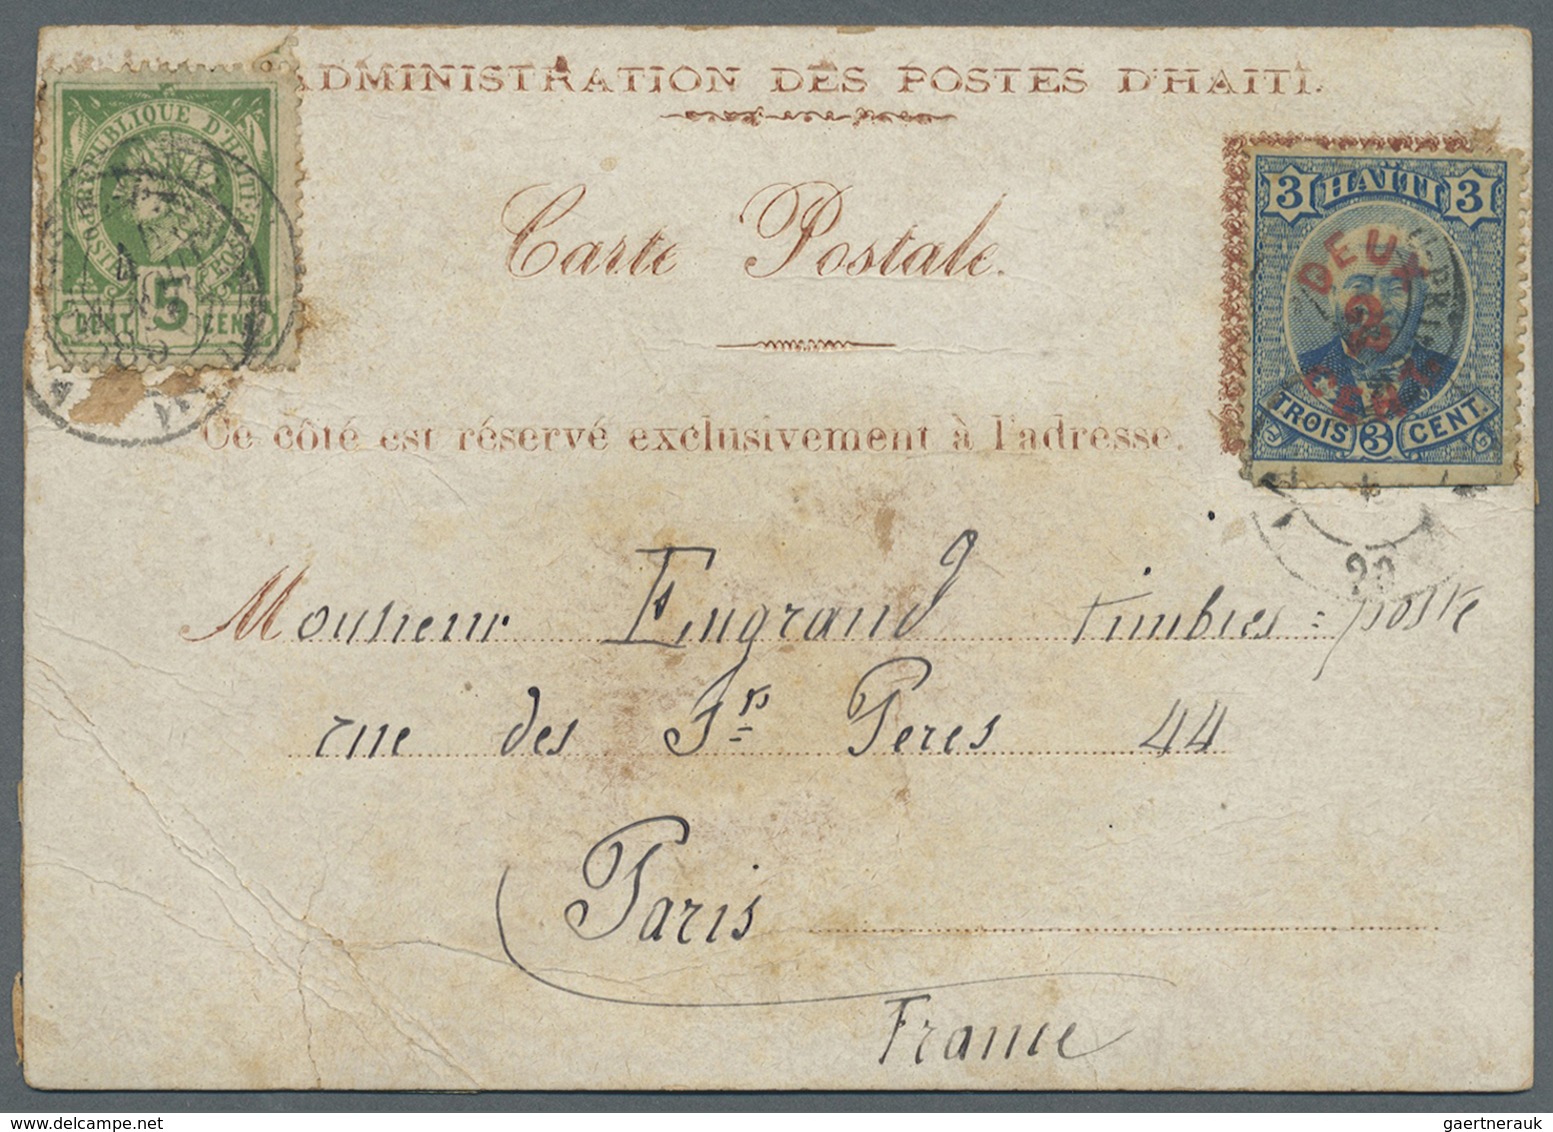 ADMINISTRATION DES POSTES D'HAITI.
RÉPUBLIQUE D'HAITI
5
CENT CENT
Carte Postale.
3 HAÏTI 3
DEUX
2
CENT.
TROIS 3 CENT.
Ce côté est réservé exclusivement à l'adresse.
90
Monsieur Engrand timbres=poste
rue des Sts Peres 44
Paris
France
gaertnerauk @ delcampe.net